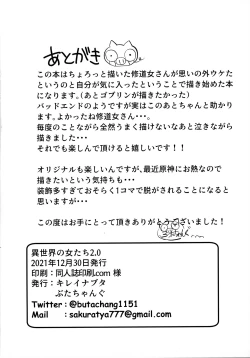 あとがき
この本はちょろっと描いた修道女さんが思いの外ウケた
というのと自分が気に入ったということで描き始めた本
になります。(あとゴブリンが描きたかった)
バッドエンドのようですが実はこのあとちゃんと助かり
ます。よかったね修道女さん・・・。
毎度のことながら全然うまく描けないなあと泣きながら
描きました・・・
それでも楽しんで頂けると嬉しいです!!
オリジナルも楽しいんですが、最近原神にお熱なので
描きたいという気持ちも・・・
装飾多すぎておそらく1コマで脱がされることになると
思いますが・・・
この度はお手にとって頂きありがとうございました!
異世界の女たち2.0
2021年12月30日発行
印刷:同人誌印刷.com 様
発行:キレイナブタ
ぶたちゃんぐ
Twitter:@butachang1151
Mail :sakuratya777@gmail.com